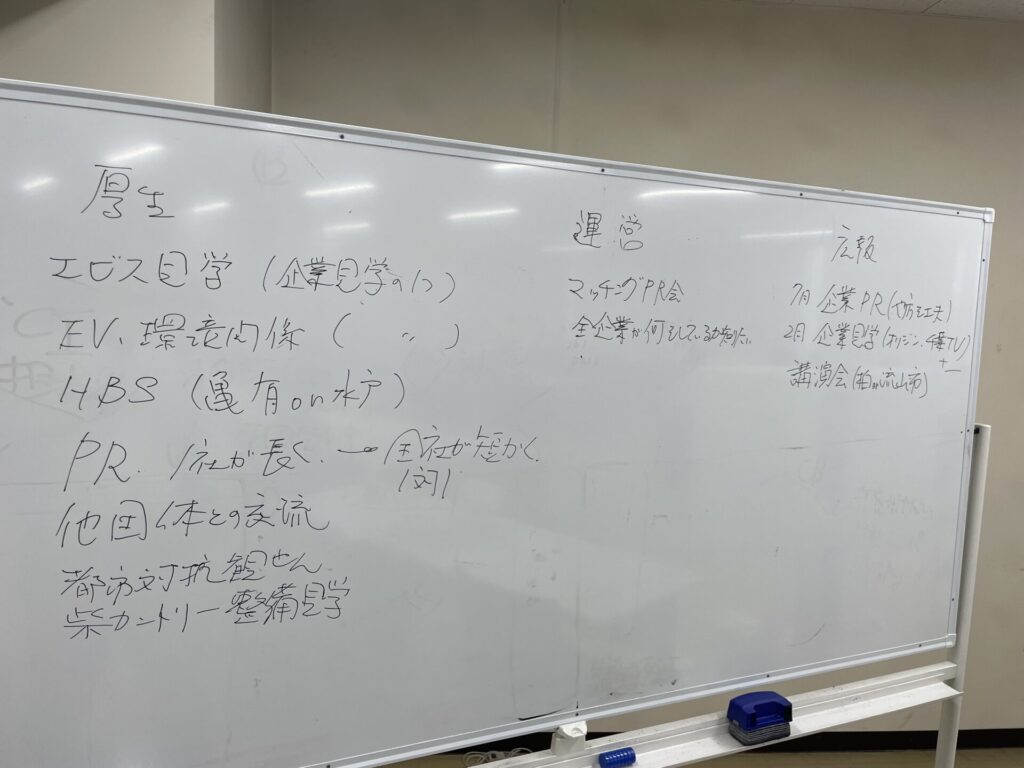 厚生
エビス見学 (企業見学の1つ)
EV、環境関係 ( 〃 )
HBS (亀有 on 水戸)
PR. 1社が長く、→全社が短かく
1対1
他団体との交流
都市対抗観せん
紫カントリー整備見学
運営
マッチングPR会
全企業が何をしているか知りたい
広報
7月 企業PR (やり方を工夫)
2月 企業見学 (オリジン、千葉TV)
講演会 (柏 流山市)